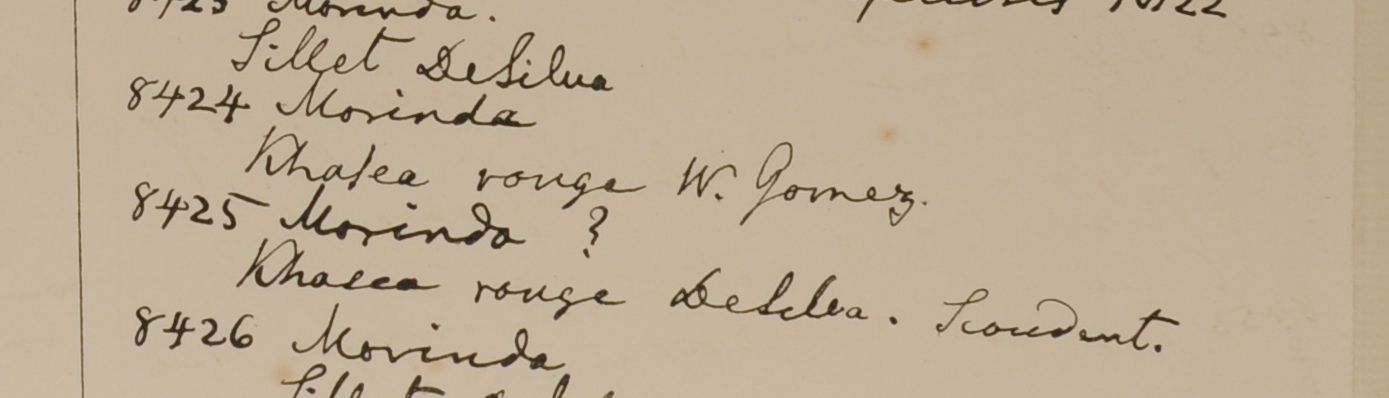 8423 Morinda.
Sillet DeSilva
8424 Morinda
Khasea rouge W. Gomez.
8425 Morinda ?
Khasea rouge DeSilva. Scandent.
8426 Morinda
Sillet